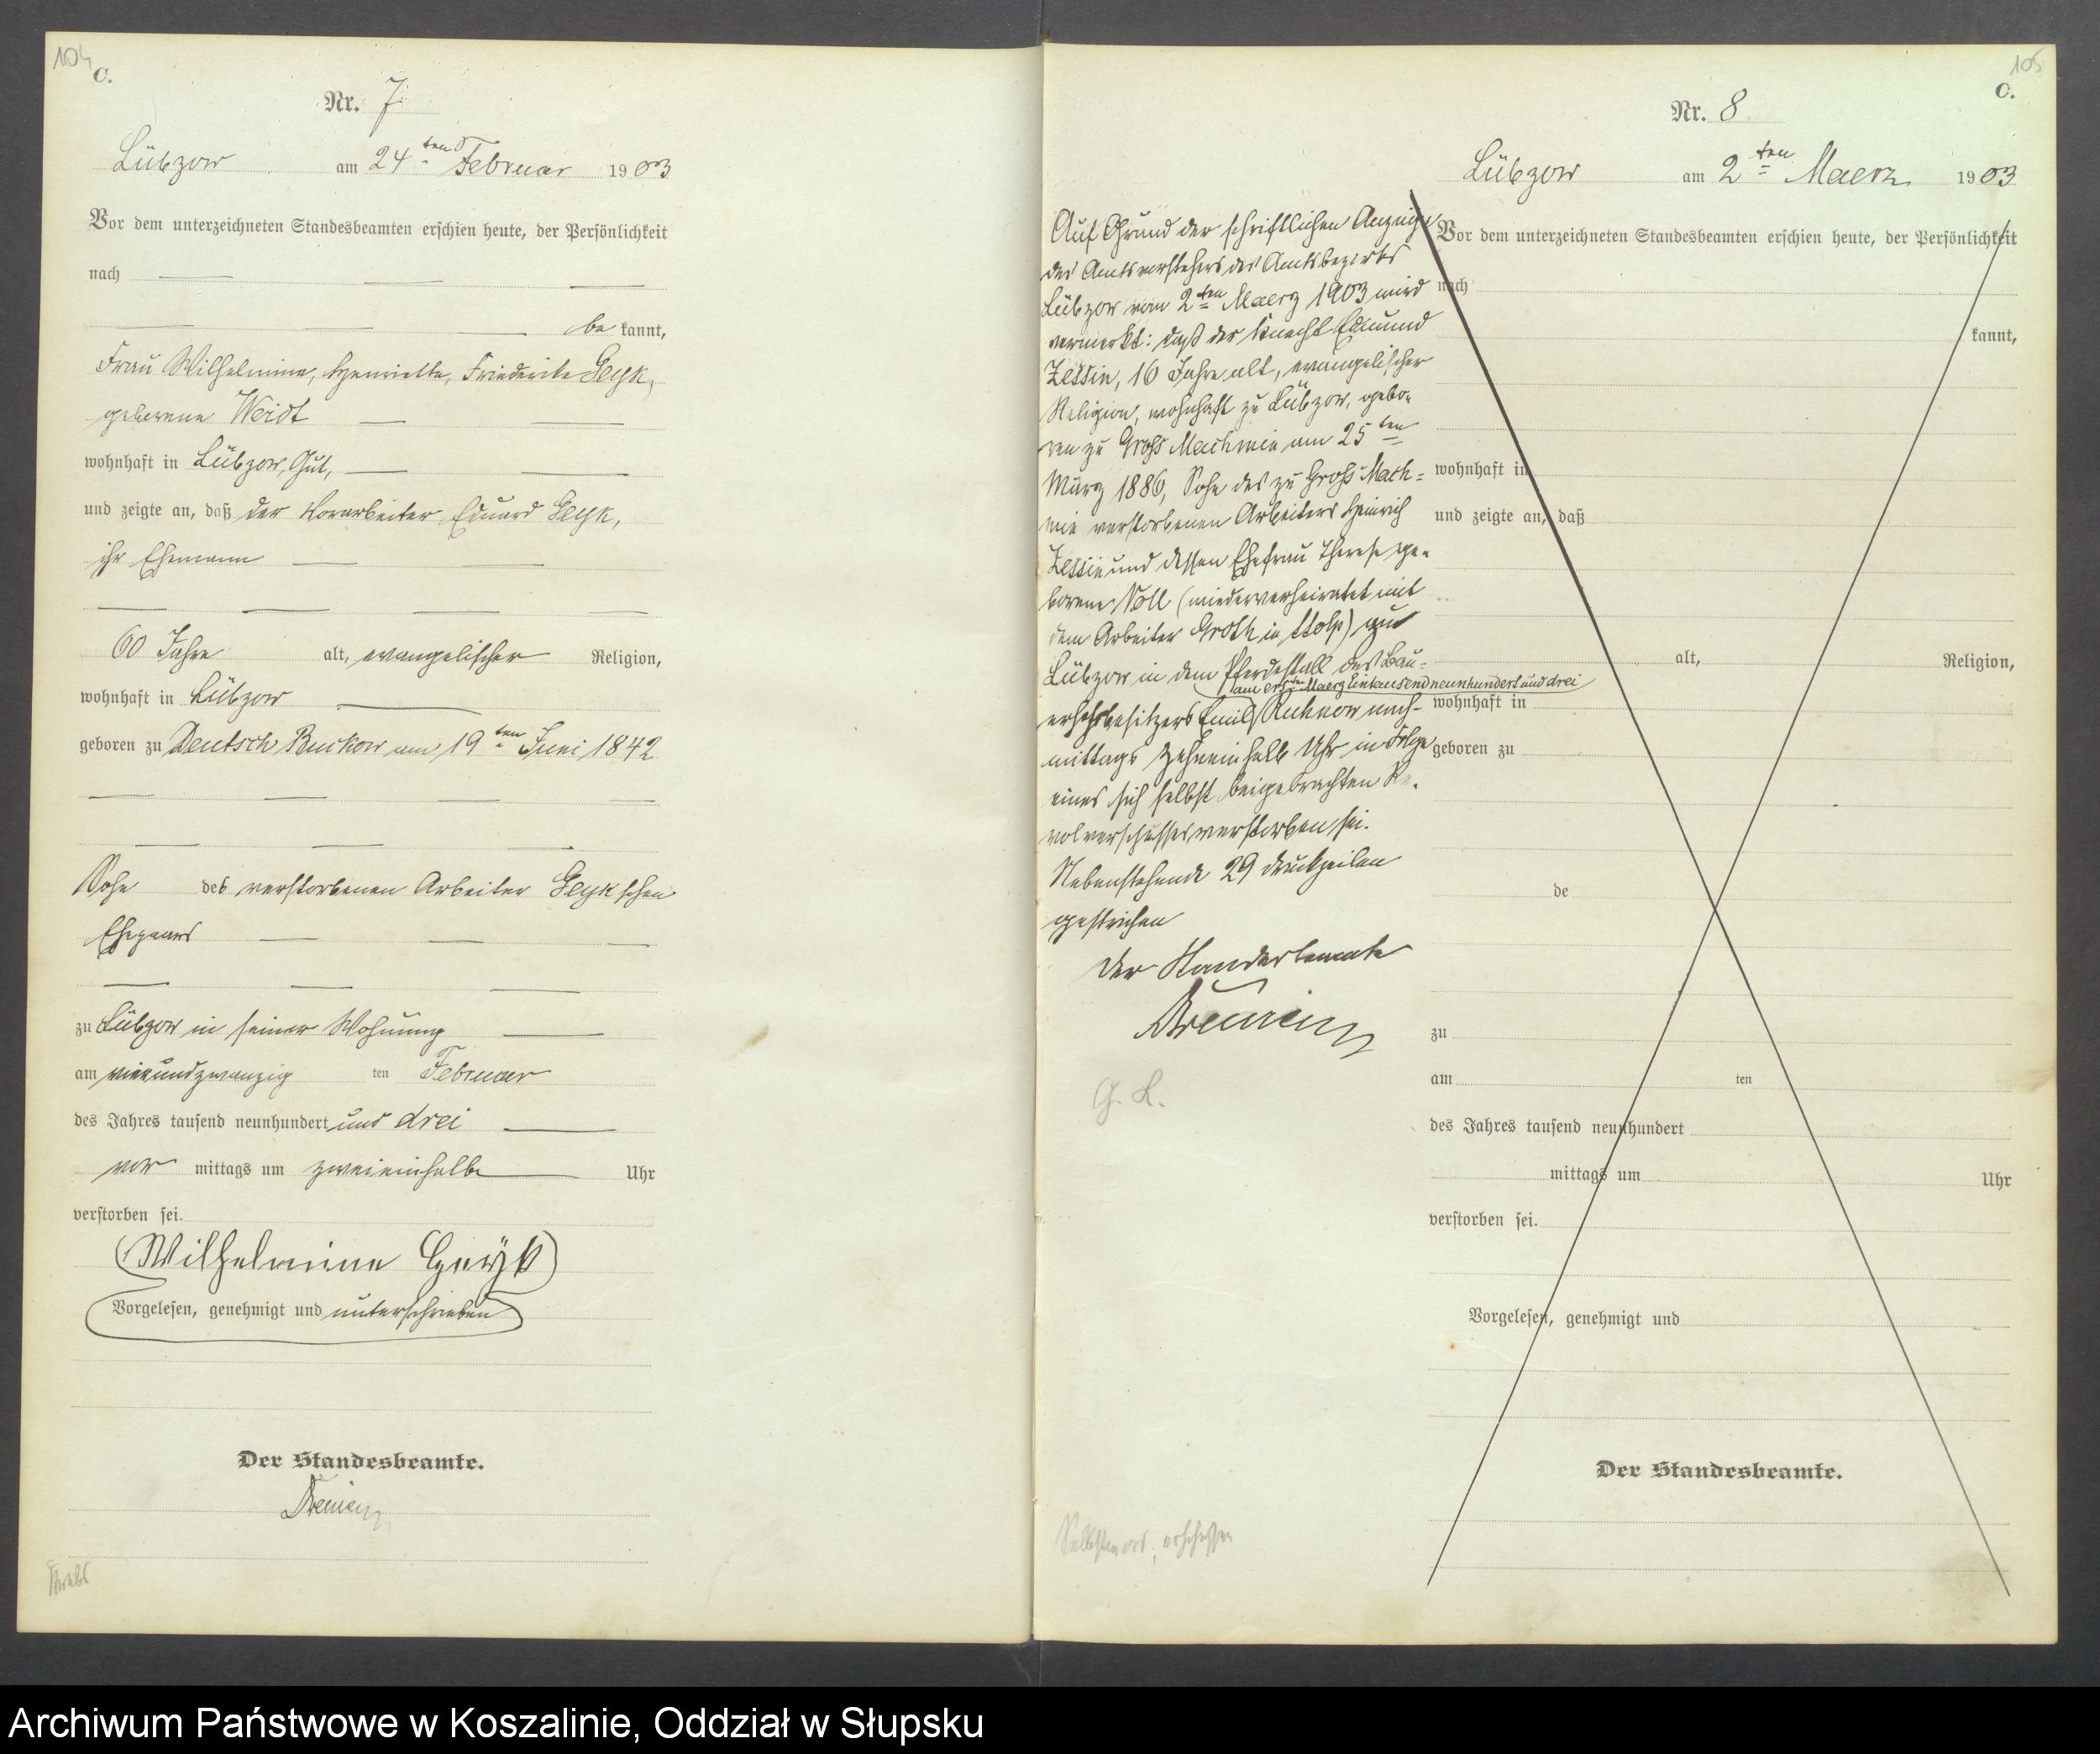 104
C.
Nr. 7
Lübzow am 24ten Februar 1903
Vor dem unterzeichneten Standesbeamten erschien heute, der Persönlichkeit
nach
be kannt,
Frau Wilhelmine, Henriette, Friederike Geyk,
geborene Weidt
wohnhaft in Lübzow, Gut,
und zeigte an, daß der Vorarbeiter Eduard Geyk,
ihr Ehemann
60 Jahre alt, evangelischer Religion,
wohnhaft in Lübzow
geboren zu Deutsch Buckow am 19ten Juni 1842
Sohn des verstorbenen Arbeiter Geykschen
Ehepaars
zu Lübzow in seiner Wohnung
am vierundzwanzig ten Februar
des Jahres tausend neunhundert und drei
vor mittags um zweieinhalb Uhr
verstorben sei.
Wilhelmine Geyk
Vorgelesen, genehmigt und unterschrieben
Der Standesbeamte.
105
C.
Nr. 8
Lübzow am 2ten Maerz 1903
Auf Grund der schriftlichen Anzeige
des Amtsvorstehers des Amtsbezirks
Lübzow vom 2ten Maerz 1903 wird
vermerkt: daß der Knecht Edmund
Zessin, 16 Jahre alt, evangelischer
Religion, wohnhaft zu Lübzow, gebo-
ren zu Gross Machmin am 25ten
März 1886, Sohn des zu Gross Mach-
min verstorbenen Arbeiters Heinrich
Zessin und dessen Ehefrau Therese ge-
borene Noll (wiederverheiratet mit
dem Arbeiter Groth in Stolp) zu
Lübzow in dem Pferdestall des Bau-
am ersten Maerz Eintausendneunhundert und drei
erhofsbesitzers Emil Ruhnow nach-
mittags zehneinhalb Uhr in Folge
eines sich selbst beigebrachten Re-
volverschusses verstorben sei.
Nebenstehende 29 Druckzeilen
gestrichen
Der Standesbeamte
G. K.
Selbstmord, erschossen
Vor dem unterzeichneten Standesbeamten erschien heute, der Persönlichkeit
nach
kannt,
wohnhaft in
und zeigte an, daß
alt, Religion,
wohnhaft in
geboren zu
de
zu
am ten
des Jahres tausend neunhundert
mittags um Uhr
verstorben sei.
Vorgelesen, genehmigt und
Der Standesbeamte.
Archiwum Państwowe w Koszalinie, Oddział w Słupsku